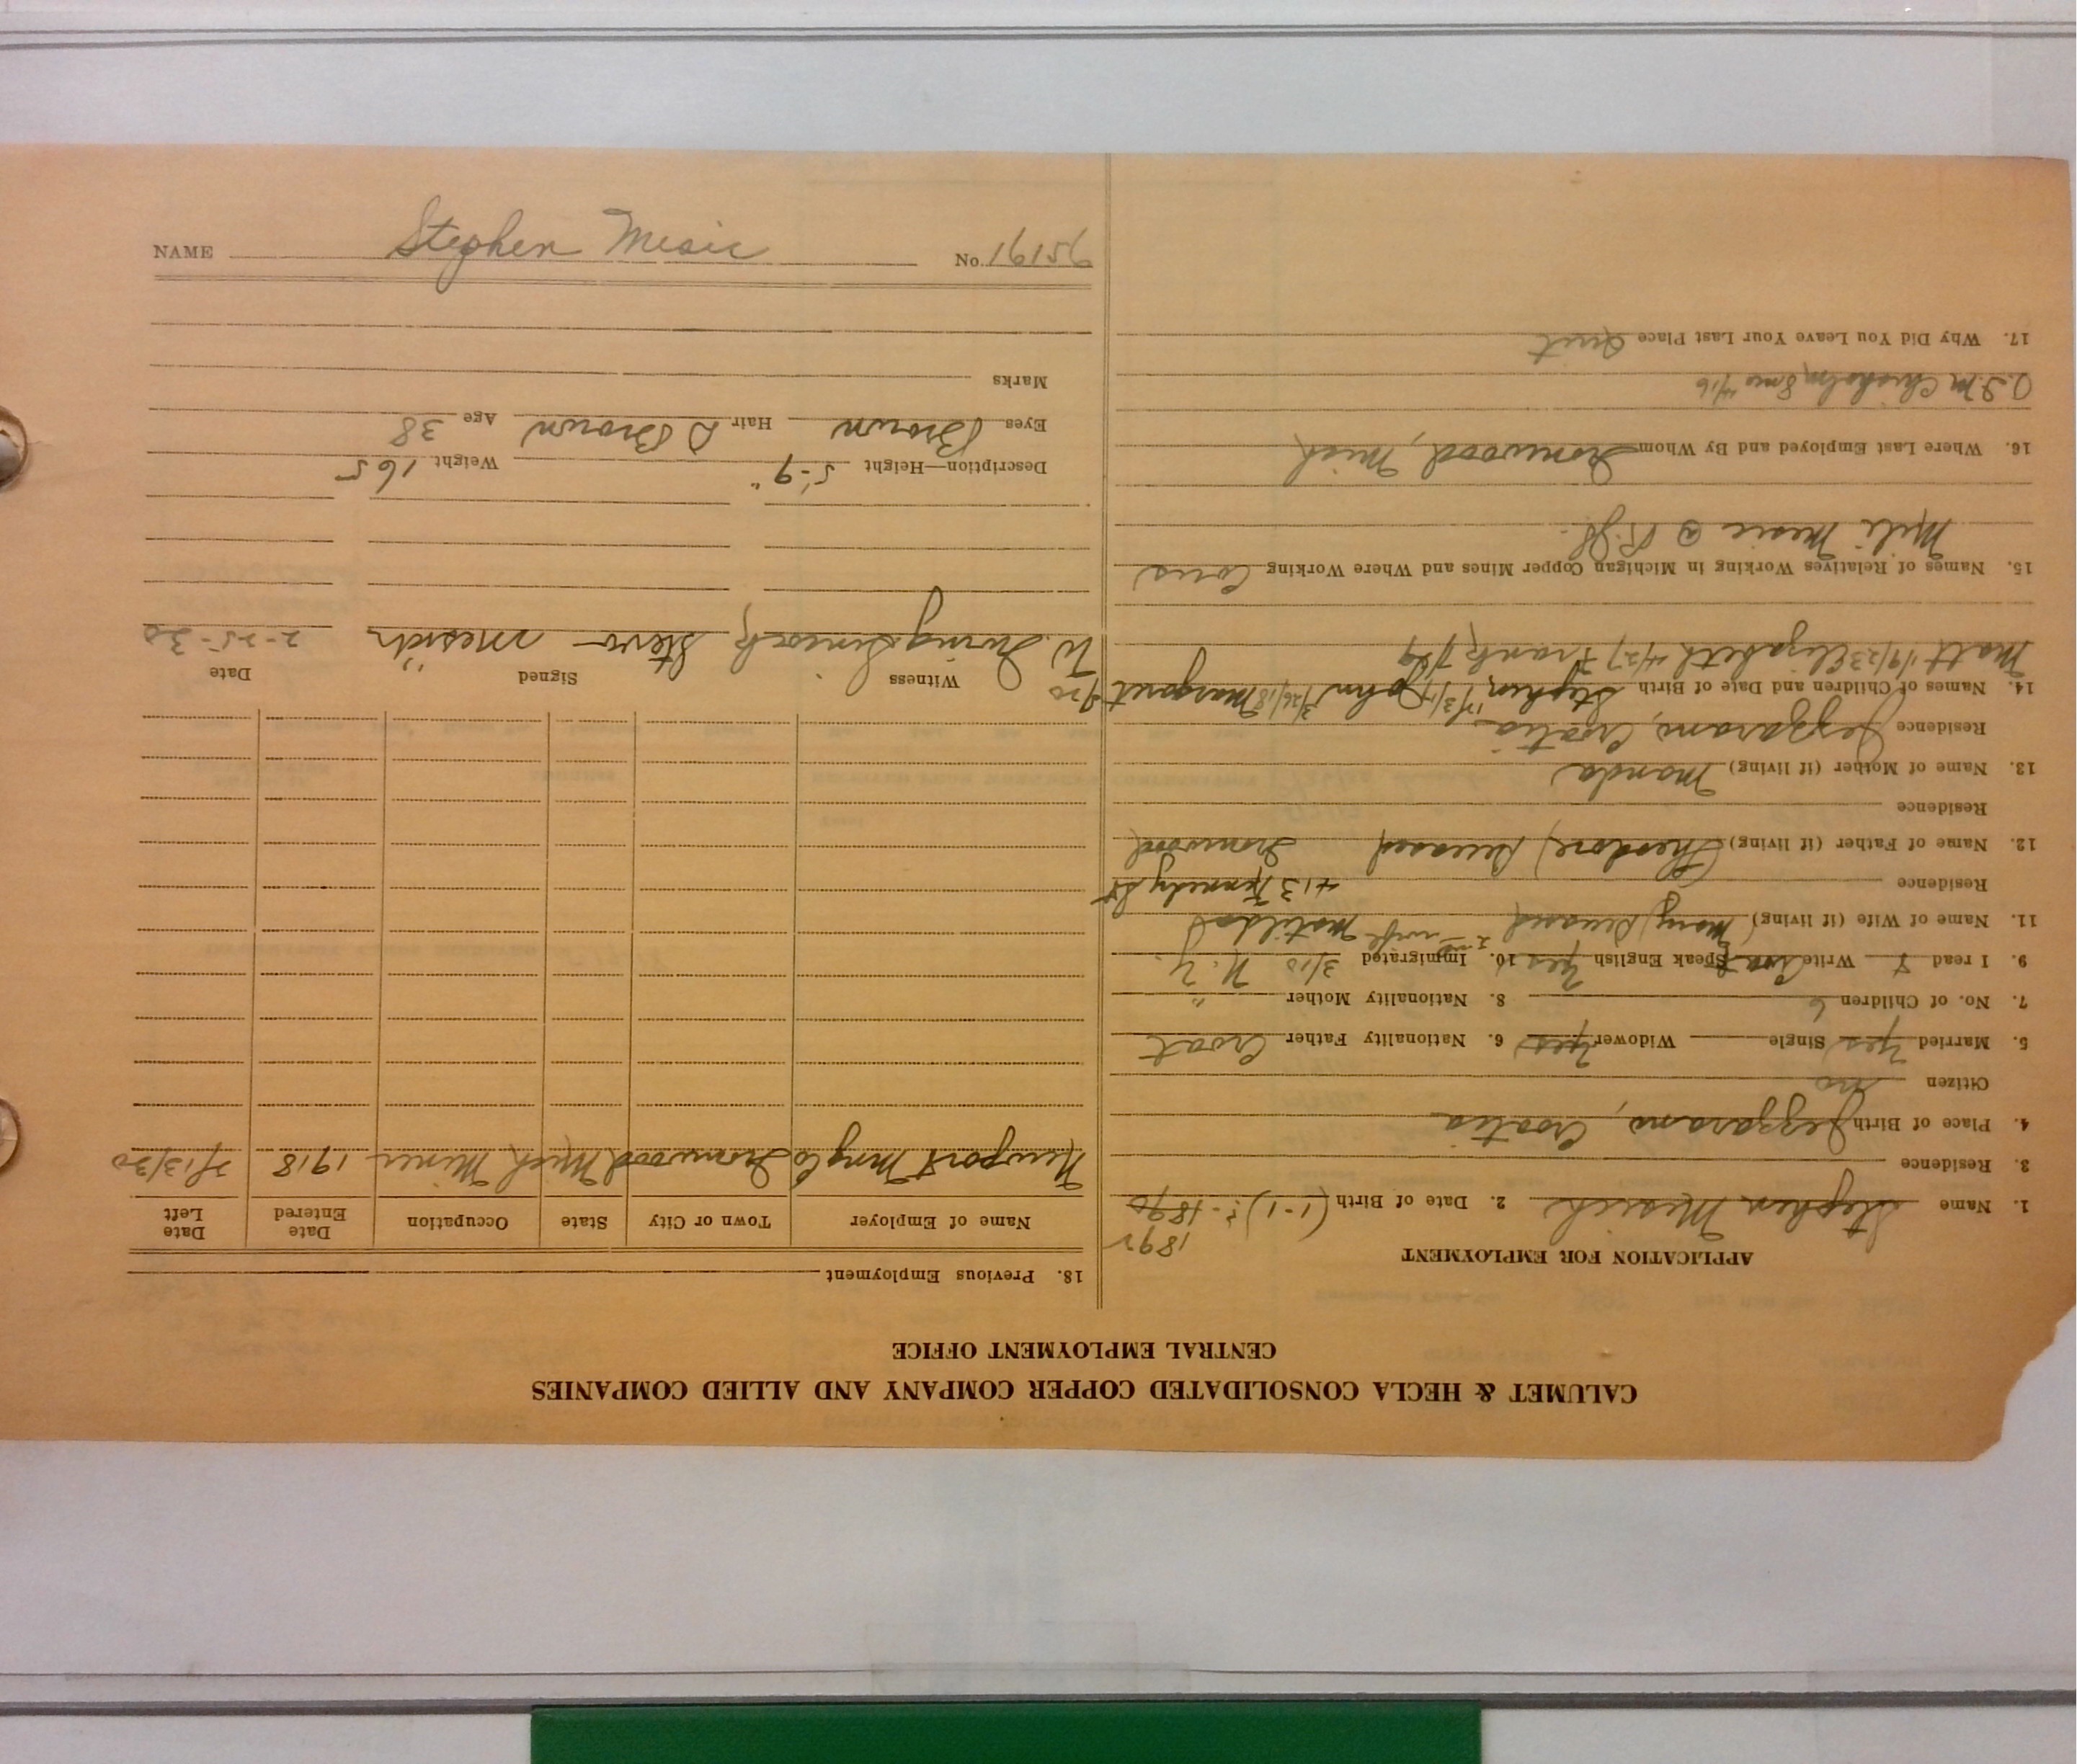 CALUMET & HECLA CONSOLIDATED COPPER COMPANY AND ALLIED COMPANIES
CENTRAL EMPLOYMENT OFFICE
APPLICATION FOR EMPLOYMENT
1892
1. Name Stephen Mesich 2. Date of Birth (1-1)?-1890
3. Residence
4. Place of Birth Jezzarano, Croatia
Citizen no
5. Married Yes Single Widower Yes 6. Nationality Father Croat
7. No. of Children 6 8. Nationality Mother "
9. I read & Write Croat Speak English Yes 10. Immigrated 3/10 N.Y.
11. Name of Wife (if living) (Mary) Deceased 2nd wife Matilda
Residence 413 Kennedy St
12. Name of Father (if living) (Theodore) Deceased Ironwood
Residence
13. Name of Mother (if living) Manda
Residence Jezzarano, Croatia
14. Names of Children and Date of Birth Stephen, John 3/26/18 Margaret
Matt 1/9/23 Elizabeth 4/27 Frank
15. Names of Relatives Working in Michigan Copper Mines and Where Working Cous
Mile Mesic @
16. Where Last Employed and By Whom Ironwood, Mich
O.I.M Chisholm 8 mo 4/16
17. Why Did You Leave Your Last Place Quit
18. Previous Employment
Name of Employer Town or City State Occupation Date Entered Date Left
Newport Mng Co Ironwood Mich Miner 1918 2/13/30
Witness Signed Date
W. Irving Stevo Mesich 2-25-30
Description—Height 5'-9" Weight 165
Eyes Brown Hair D Brown Age 38
Marks
NAME Stephen Mesic No. 19157